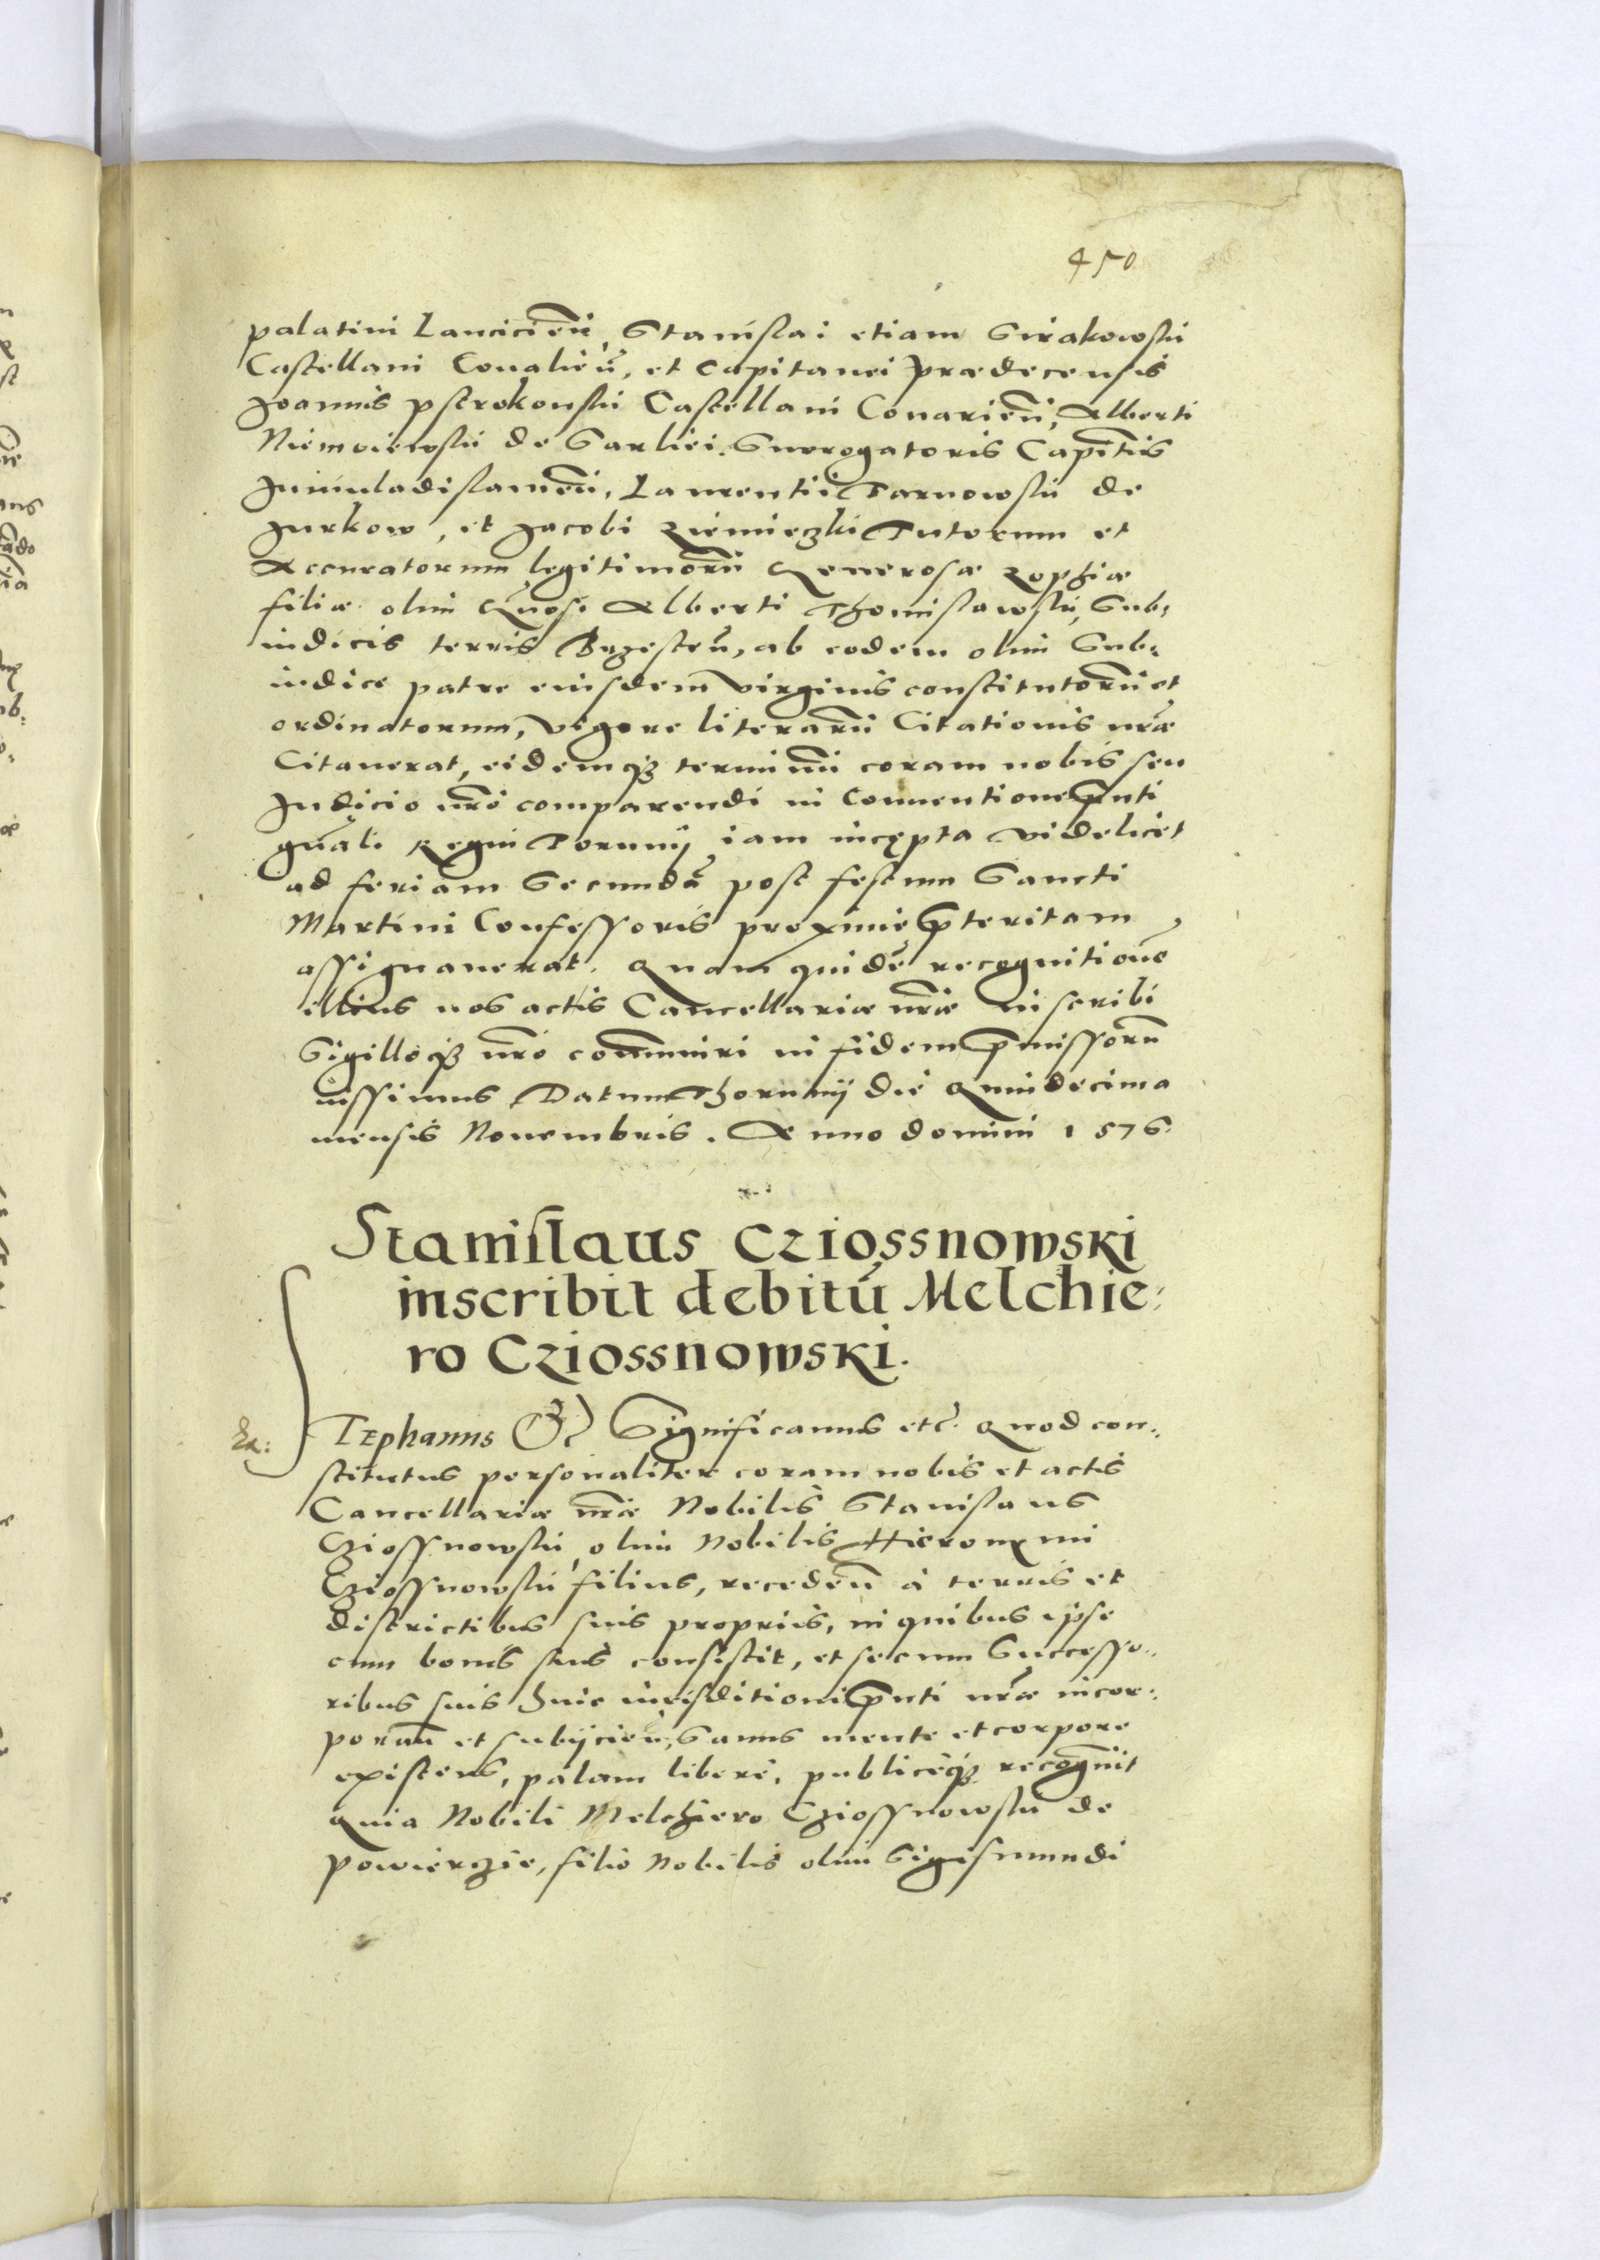 450
palatini Lancicień, Stanislai etiam Sirakowski
Castellani Conalień, et Capitanei Prædecensis
Joannis Pstrokonski Castellani Conarień, Alberti
Niemoiewski de Sarliei Surrogatoris Capitis
Juniuladislamień, Laurentii Tarnowski de
Jurkow, et Jacobi Ziemieczki Tutorum et
Accuratorum legitimorū Generosæ Zophiæ
filiæ olim Gnosi Alberti Thomislawski, Sub-
iudicis terris Brzesteń, ab eodem olim Sub-
iudice patre eiusdem virginis constitutorū et
ordinatorum, vigore literarū Citationis nræ
Citauerat, eidemq; terminū coram nobis seu
Judicio nro comparendi in Conuentione pnti
gnali Regni Torunij iam incępta videlicet
ad feriam Secundā post festum Sancti
Martini Confessoris proxime pteritam
assignauerat. Quam quidē recognitionē
illius nos actis Cancellariæ nræ inscribi
Sigilloq; nro communiri in fidem pmissorū
iussimus Datum Thorunij die Quindecima
mensis Nouembris. Anno domini 1576.
Stanislaus Cziossnowski
inscribit debitū Melchie-
ro Cziossnowski.
Ex:
STEphanus &c Significamus etc. Quod con-
stitutus personaliter coram nobis et actis
Cancellariæ nræ Nobilis Stanislaus
Cziossnowski, olim Nobilis Hieronymi
Cziossnowski filius, recedeń à terris et
districtibus suis proprijs, in quibus ipse
cum bonis suis consistit, et se cum Successo-
ribus suis huic iurisditioni pnti nræ incor-
porań et subijcień, Sanus mente et corpore
existens, palam libere, publiceq; recognouit
quia Nobili Melchiero Cziossnowski de
Powierzie, filio Nobilis olim Sigismundi